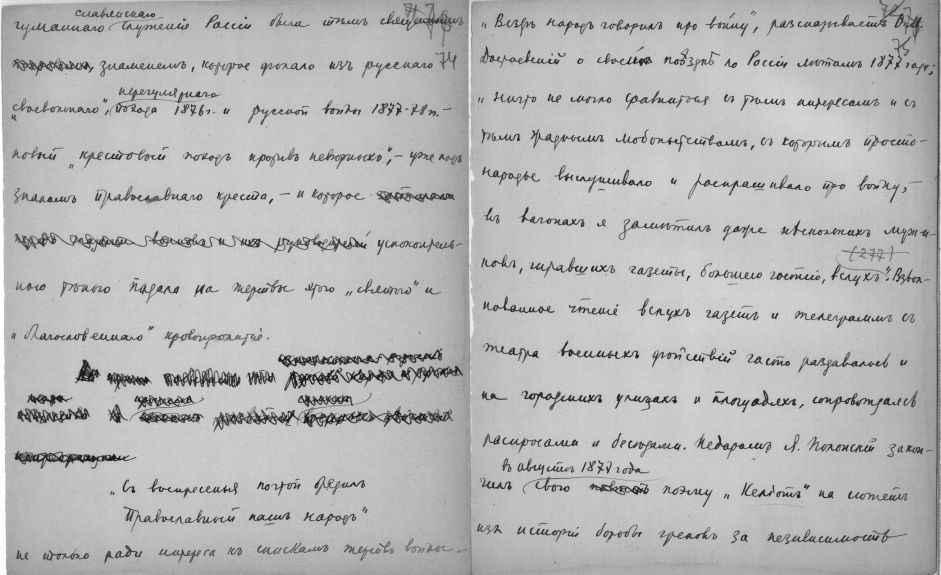 славянскаго
гуманнаго служенія Россіи были тѣмъ священнымъ
знаменемъ, которое упало изъ русскаго 74
нерегулярнаго
„своевольнаго“, похода 1876 г. и русской войны 1877-78 гг. –
новый „крестовый походъ противъ невѣрныхъ“, – уже подъ
знакомъ Православнаго креста, – и которое
успокоитель-
ною тѣнью падала на жертвы этого „святого“ и
„благословеннаго“ кровопролитія.
„Съ воскресенья почтой бредилъ
Православный нашъ народъ“
не столько ради интереса къ спискамъ жертвъ войны –
75
„Вездѣ народъ говорилъ про войну“, разсказываетъ
Достоевскій о своей поѣздкѣ по Россіи лѣтомъ 1877 года;
„Ничто не могло сравниться съ тѣмъ интересомъ и съ
тѣмъ жаднымъ любопытствомъ, съ которымъ просто-
народье выслушивало и распрашивало про войну;–
въ вагонахъ я замѣтилъ даже нѣсколькихъ мужи-
(277)
ковъ, читавшихъ газеты, большею частію, вслухъ“. Взвол-
нованное чтеніе вслухъ газетъ и телеграммъ съ
театра военныхъ дѣйствій часто раздавалось и
на городскихъ улицахъ и площадяхъ, сопровождаясь
распросами и бесѣдами. Недаромъ Я. Полонскій закон-
въ августѣ 1877 года
чилъ свою поэму „Келіотъ“ на сюжетъ
изъ исторіи борьбы грековъ за независимость